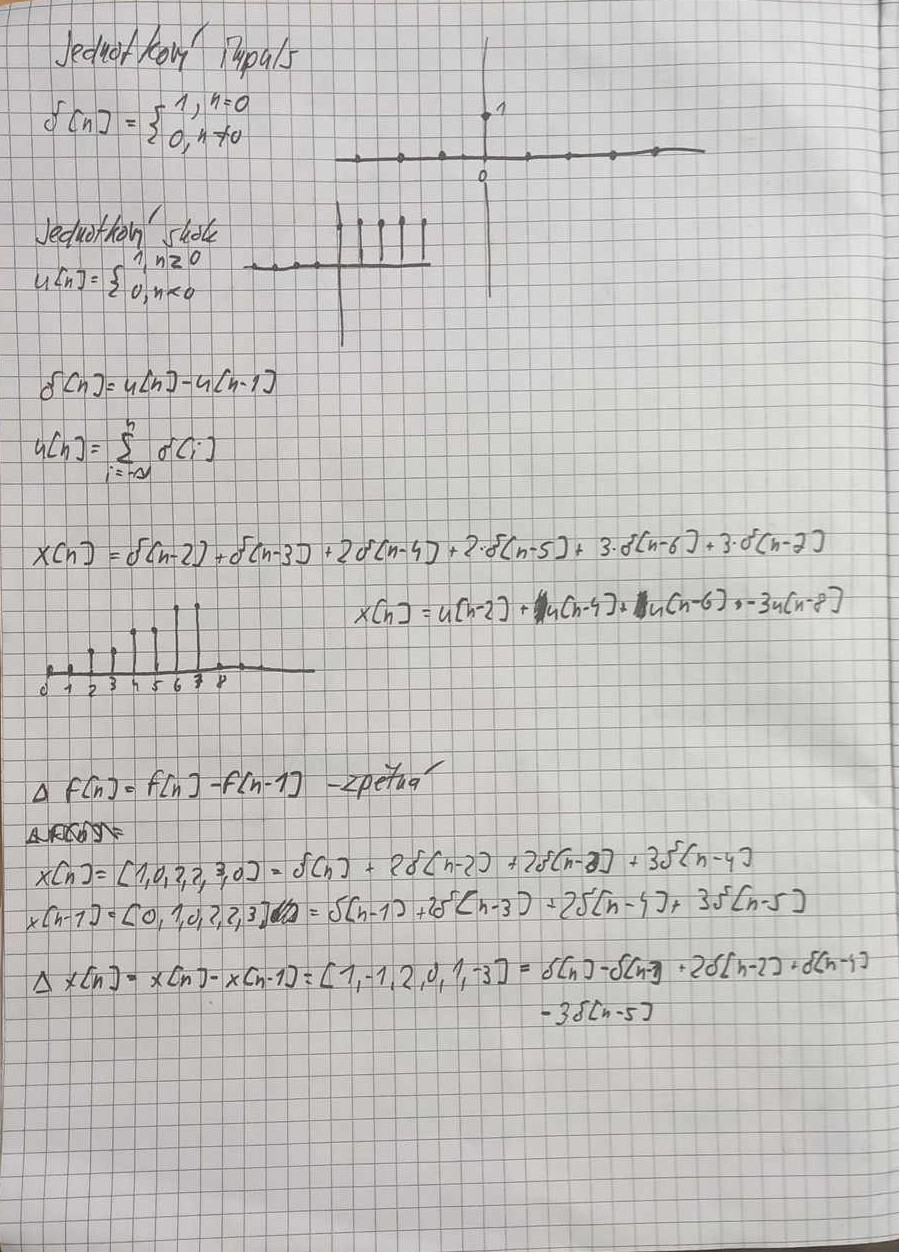 Jednotkový impuls
δ[n] = { 1, n=0
0, n≠0
1
0
Jednotkový skok
u[n] = { 1, n≥0
0, n<0
δ[n] = u[n] - u[n-1]
u[n] = Σ_{i=-∞}^{n} δ[i]
x[n] = δ[n-2] + δ[n-3] + 2δ[n-4] + 2·δ[n-5] + 3·δ[n-6] + 3·δ[n-7]
x[n] = u[n-2] + u[n-4] + u[n-6] + -3u[n-8]
0 1 2 3 4 5 6 7 8
Δ f[n] = f[n] - f[n-1] - zpětná
x[n] = [1,0,2,2,3,0] = δ[n] + 2δ[n-2] + 2δ[n-3] + 3δ[n-4]
x[n-1] = [0,1,0,2,2,3] = δ[n-1] + 2δ[n-3] + 2δ[n-4] + 3δ[n-5]
Δ x[n] = x[n] - x[n-1] = [1,-1,2,0,1,-3] = δ[n] - δ[n-1] + 2δ[n-2] + δ[n-4]
- 3δ[n-5]